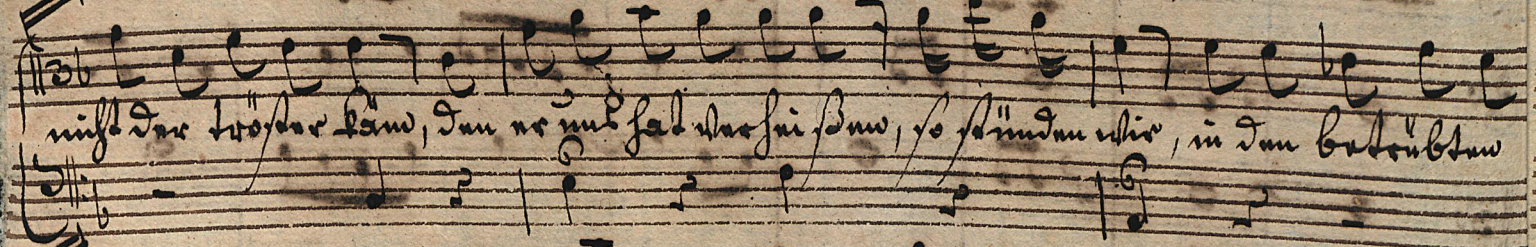 nicht der tröster käm, den er uns hat verheißen, so stünden wir, in den betrübten
6
6